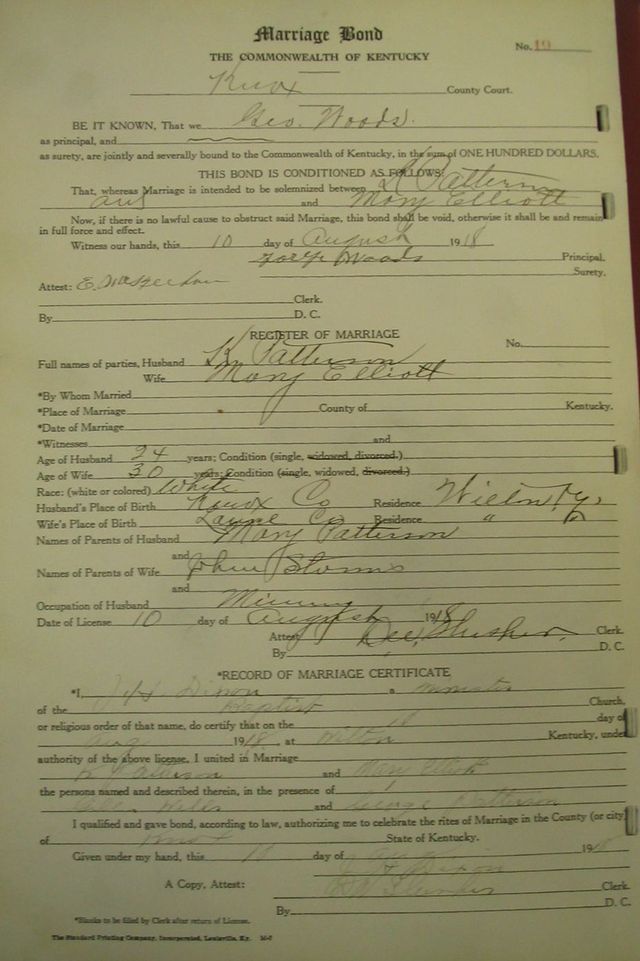 Marriage Bond
No. 19
THE COMMONWEALTH OF KENTUCKY
Knox County Court.
BE IT KNOWN, That we Geo. Woods.
as principal, and
as surety, are jointly and severally bound to the Commonwealth of Kentucky, in the sum of ONE HUNDRED DOLLARS.
THIS BOND IS CONDITIONED AS FOLLOWS:
That, whereas Marriage is intended to be solemnized between Patterson
and and Mary Elliott
Now, if there is no lawful cause to obstruct said Marriage, this bond shall be void, otherwise it shall be and remain
in full force and effect.
Witness our hands, this 10 day of August 1918
Woods Principal.
Surety.
Attest:
Clerk.
By D. C.
REGISTER OF MARRIAGE
No.
Full names of parties, Husband Patterson
Wife Mary Elliott
*By Whom Married
*Place of Marriage County of Kentucky.
*Date of Marriage
*Witnesses and
Age of Husband 24 years; Condition (single, widowed, divorced.)
Age of Wife 30 years; Condition (single, widowed, divorced.)
Race: (white or colored) White
Husband's Place of Birth Knox Co Residence Wilton Ky.
Wife's Place of Birth Laurel Co Residence "
Names of Parents of Husband Mary Patterson
and
Names of Parents of Wife John Storms
and
Occupation of Husband Mining
Date of License 10 day of August 1918
Attest Clerk.
By D. C.
*RECORD OF MARRIAGE CERTIFICATE
*I, Dixon a minister
of the Baptist Church,
or religious order of that name, do certify that on the day of
Aug 1918. at Wilton Kentucky, under
authority of the above license, I united in Marriage
Patterson and Mary Elliott
the persons named and described therein, in the presence of
and George Patterson
I qualified and gave bond, according to law, authorizing me to celebrate the rites of Marriage in the County (or city)
of Knox State of Kentucky.
Given under my hand, this day of 1918
Dixon
A Copy, Attest: Clerk.
By D. C.
*Blanks to be filed by Clerk after return of License.
The Standard Printing Company, Incorporated, Louisville, Ky.